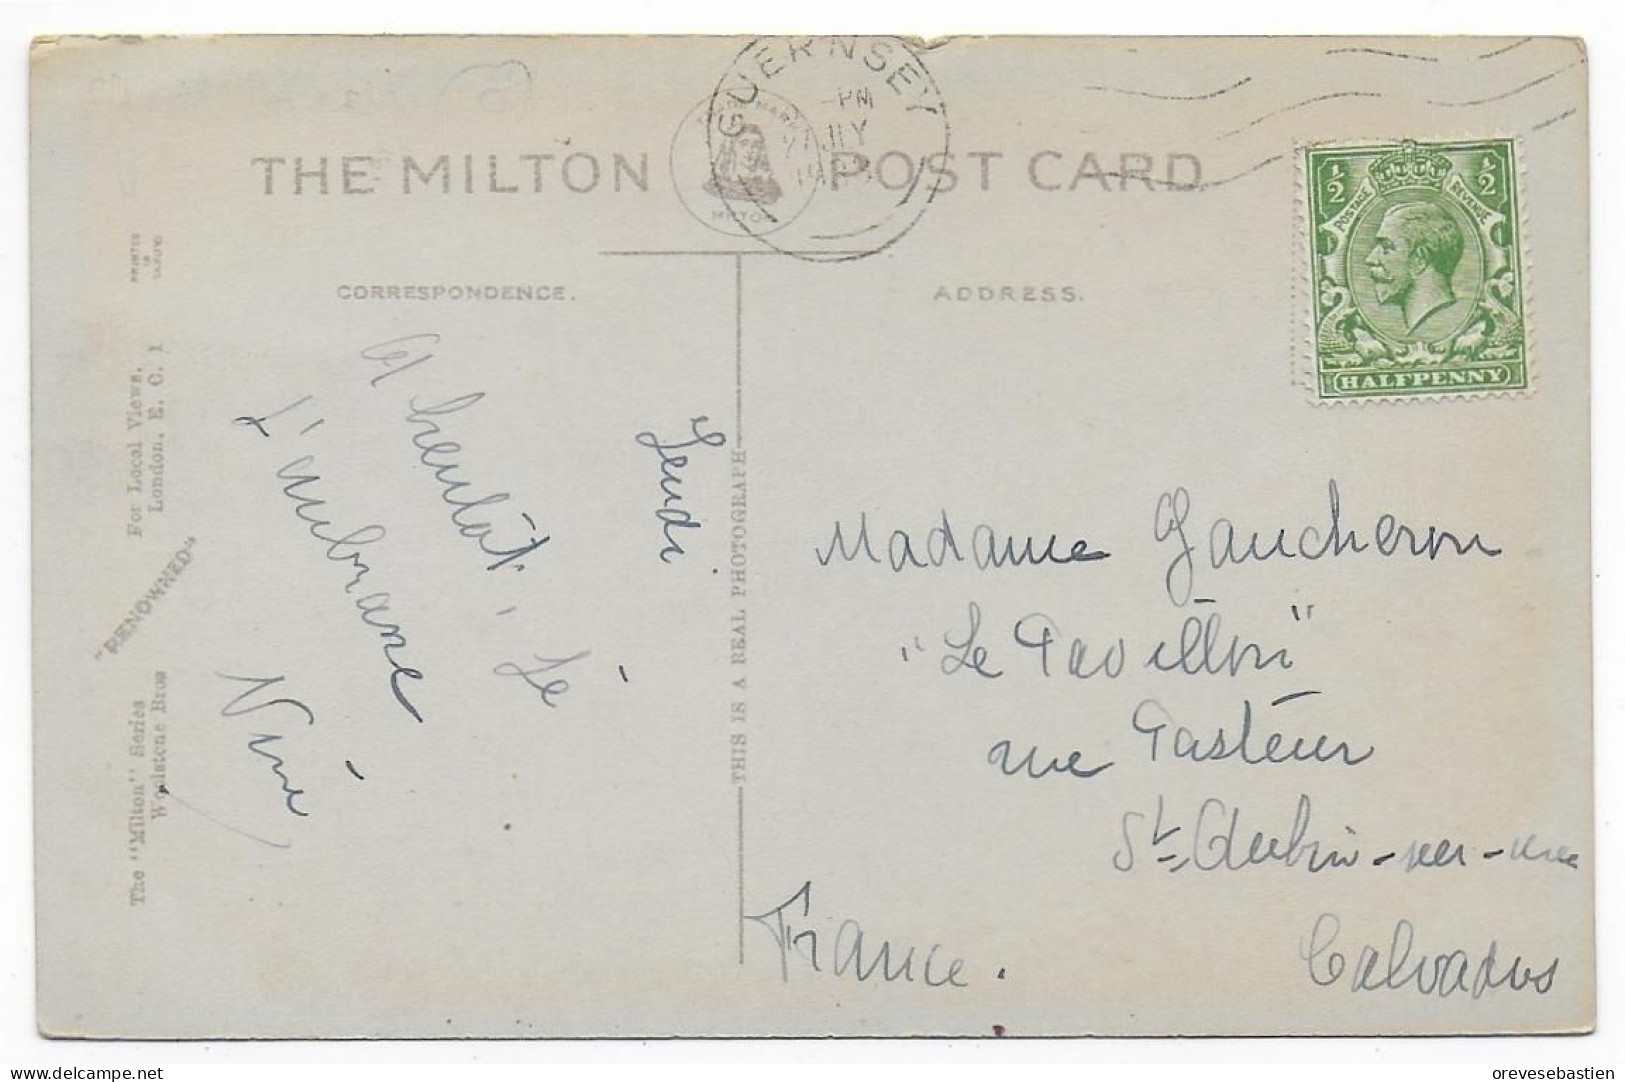 GUERNSEY
-PM
JLY
THE MILTON POST CARD
TRADE MARK
MILTON
½ ½
POSTAGE REVENUE
HALFPENNY
CORRESPONDENCE.
ADDRESS.
Jeudi
A bientôt. Je
t'embrasse
Madame Gaucheron
"Le Pavillon"
rue Pasteur
St Aubin-sur-mer
Calvados
France.
THIS IS A REAL PHOTOGRAPH
The "Milton" Series
Woolstone Bros
"RENOWNED"
For Local Views.
London, E. C. 1
PRINTED
IN
delcampe.net
orevesebastien